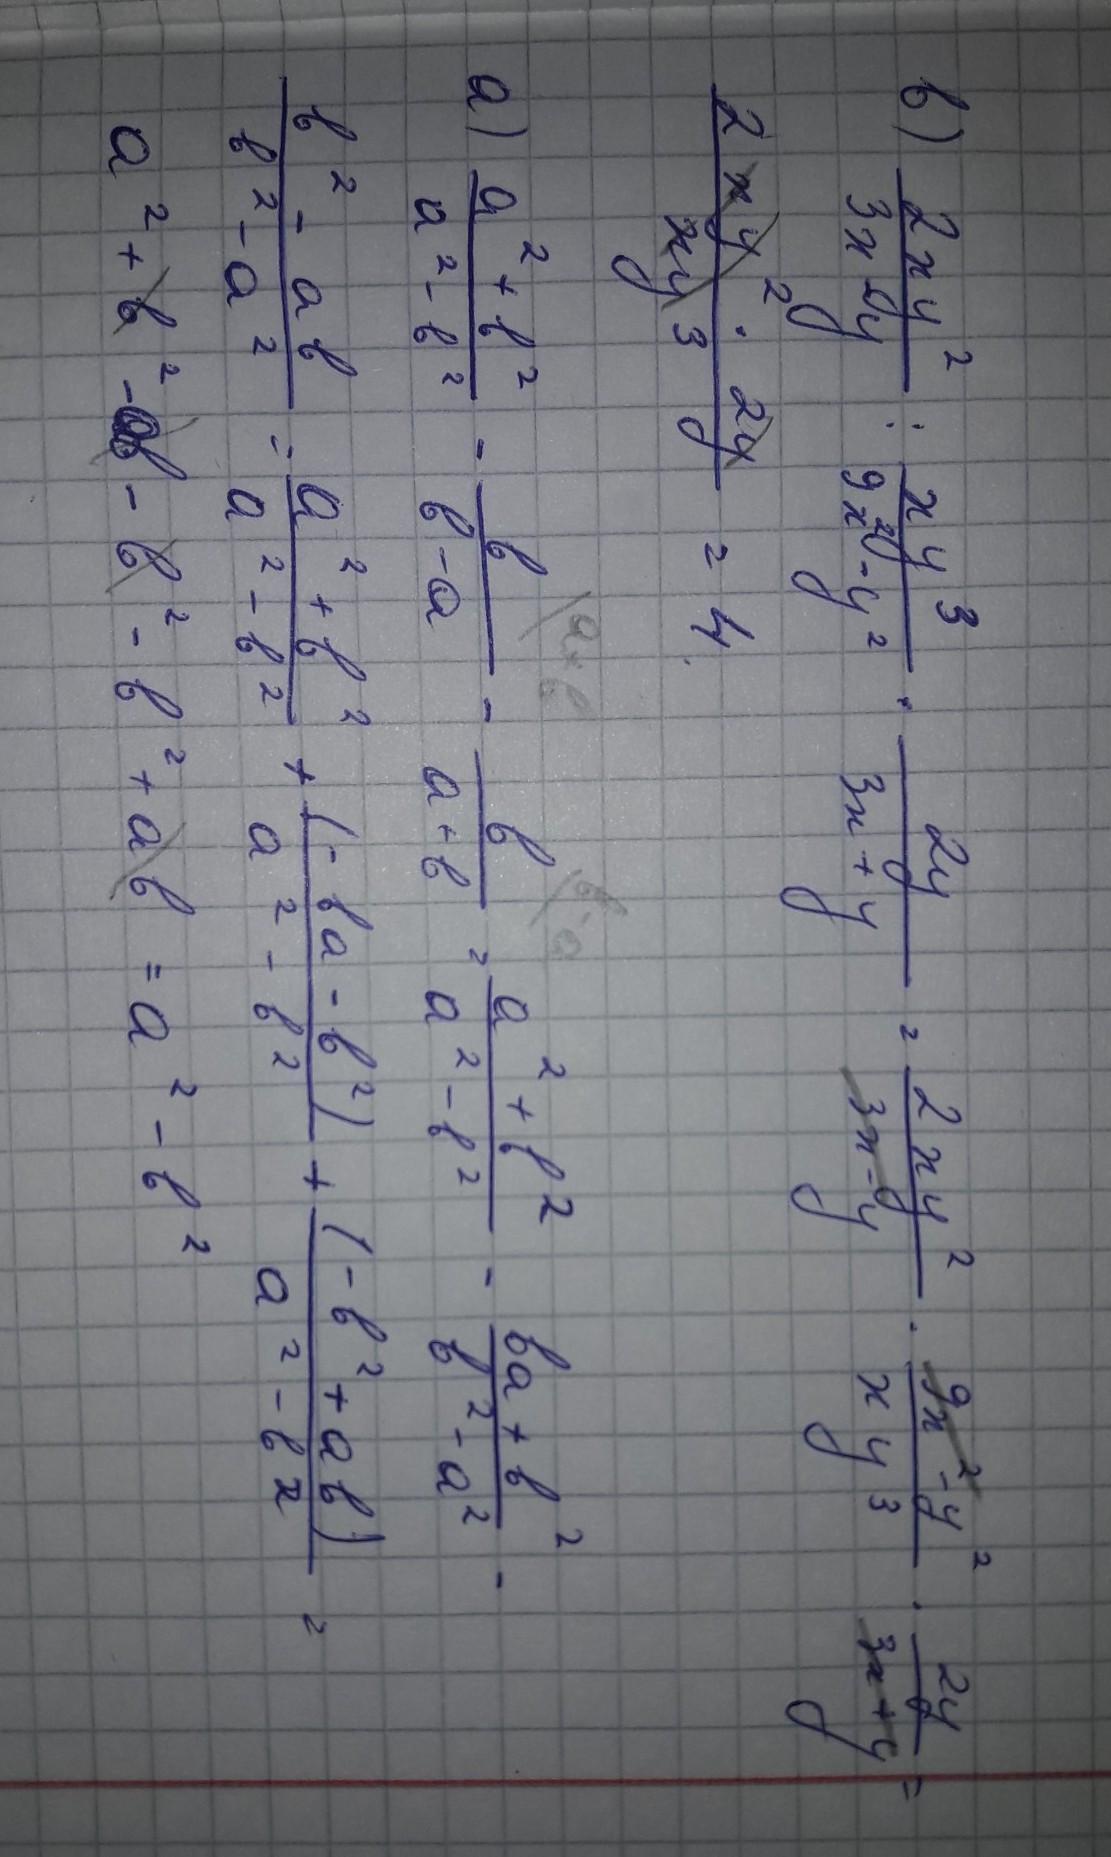 в) 2xy²/3x-y : xy³/9x²-y² · 2y/3x+y = 2xy²/3x-y · 9x²-y²/xy³ · 2y/3x+y =
2xy² · 2y/xy³ = 4.
a) a²+b²/a²-b² - b/b-a - b/a+b = a²+b²/a²-b² - ba+b²/b²-a² -
b²-ab/b²-a² = a²+b²/a²-b² + (-ba-b²)/a²-b² + (-b²+ab)/a²-b² =
a²+b² - b² - b² + ab = a² - b²